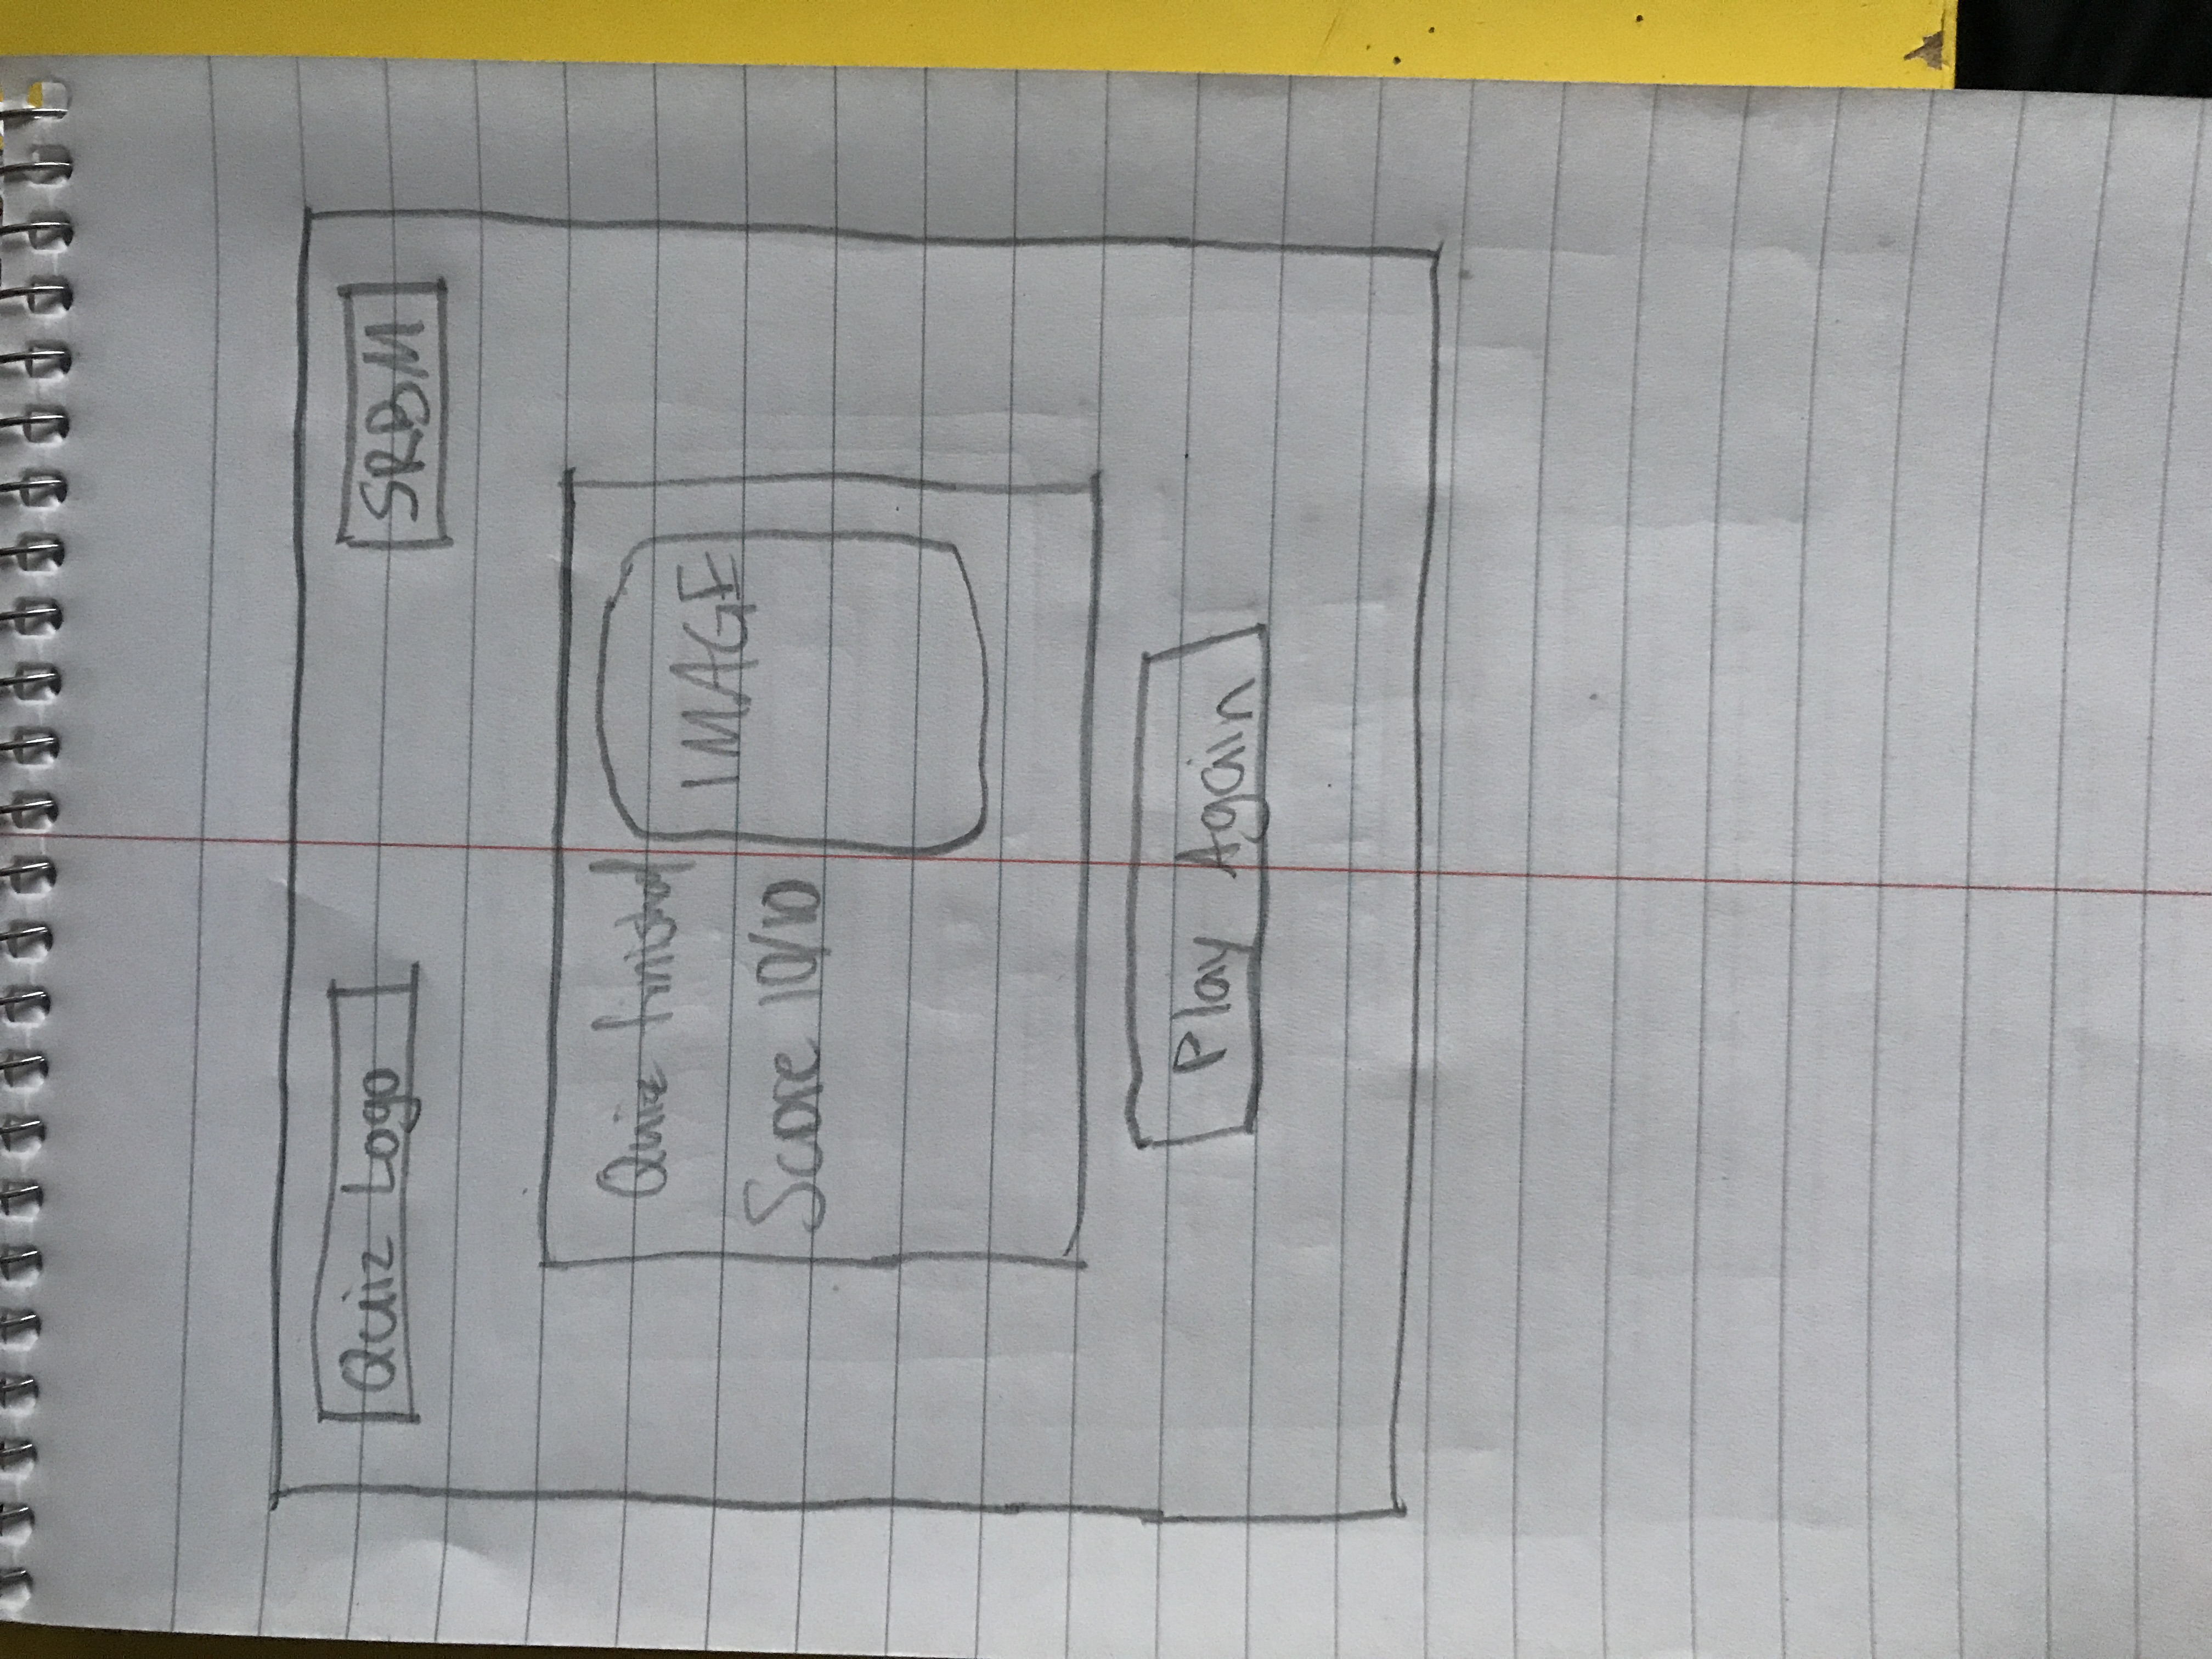 Quiz Logo
SRBM
Quiz finished
Score 10/10
IMAGE
Play Again